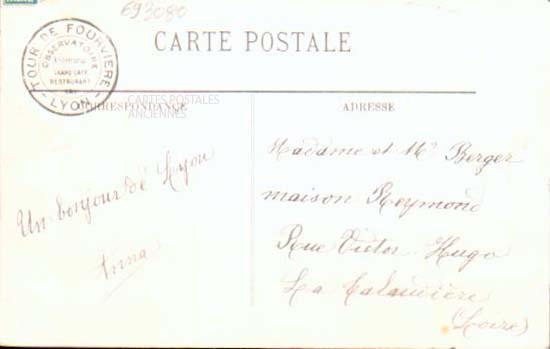 693080
CARTE POSTALE
TOUR DE FOURVIERE
OBSERVATOIRE
GRAND CAFÉ
RESTAURANT
LYON
CORRESPONDANCE
CARTES POSTALES
ANCIENNES
ADRESSE
Un bonjour de Lyon
Anna
Madame et Mr Berger
maison Reymond
Rue Victor Hugo
La
(Loire)